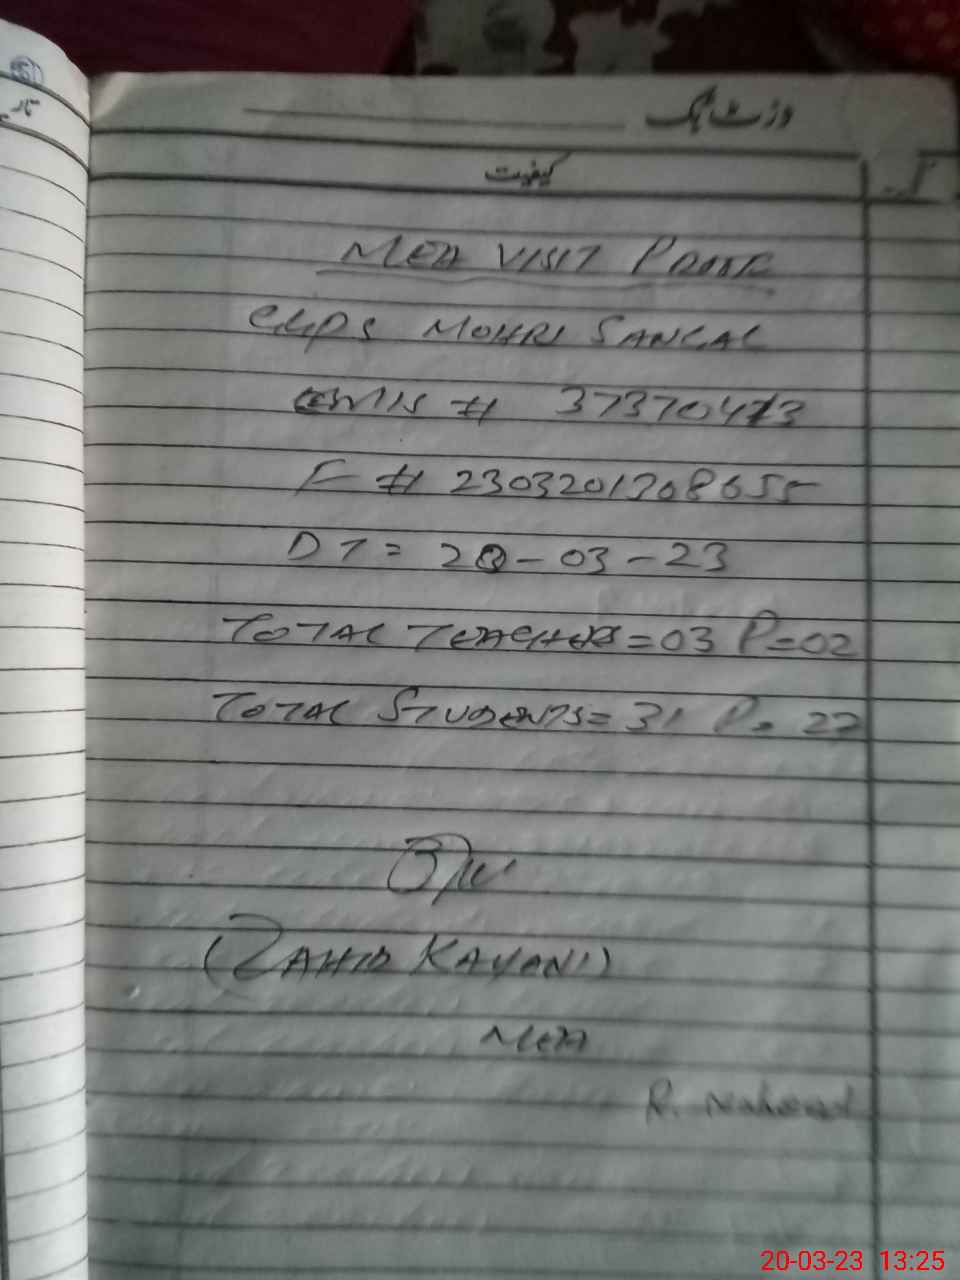 51
وزٹ بک
کیفیت
MEA VISIT PROOF
GGPS MOHRI SANGAL
EMIS # 37370473
F # 2303201308655
DT = 20-03-23
TOTAL TEACHERS = 03 P=02
TOTAL STUDENTS = 31 P= 22
(ZAHID KAYANI)
MEA
R. Naheed
20-03-23 13:25